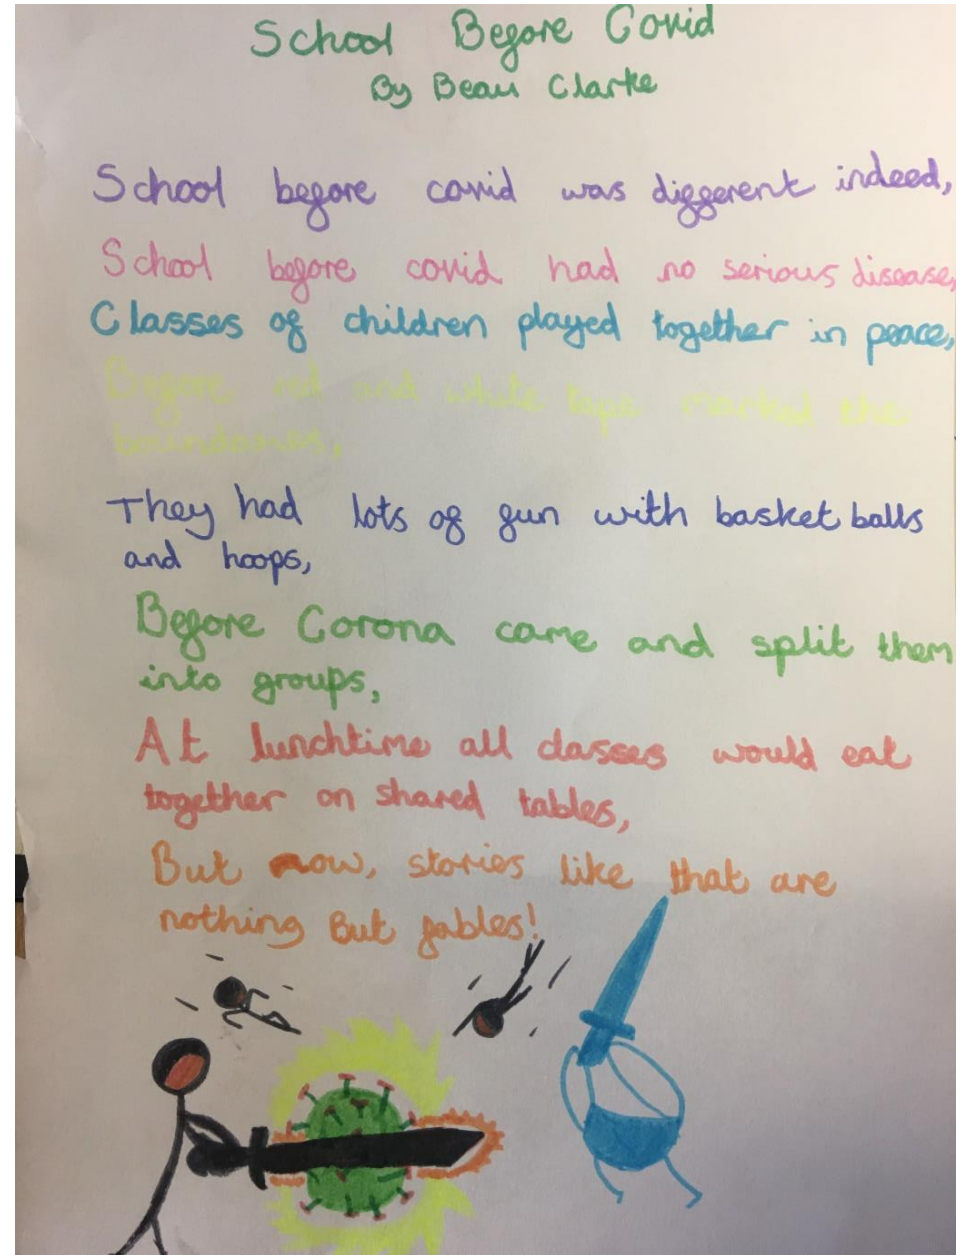 School Before Covid
By Beau Clarke
School before covid was different indeed,
School before covid had no serious disease,
Classes of children played together in peace,
Before red and white tape marked the
boundaries,
They had lots of fun with basket balls
and hoops,
Before Corona came and split them
into groups,
At lunchtime all classes would eat
together on shared tables,
But now, stories like that are
nothing But fables!